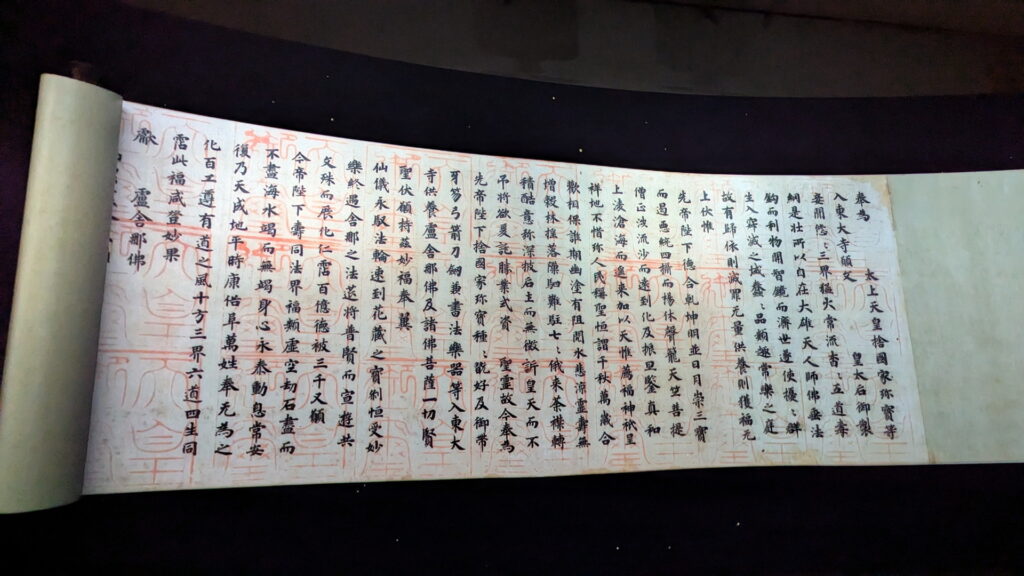 奉為
太上天皇捨國家珎寶等
入東大寺願文　皇太后御製
妾聞悠々三界猛火常流杳々五道毒
網是壯所以自在大雄天人師佛垂法
鉤而利物開智鏡而濟世遂使擾々群
生入寂滅之域蠢々品類趣常樂之庭
故有歸依則滅罪无量供養則獲福无
上伏惟
先帝陛下德合乾坤明並日月崇三寶
而遏惡統四攝而揚休聲籠天竺菩提
僧正涉流沙而遠到化及振旦鑒真和
上凌滄海而遙來加以天惟薦福神祇呈
祥地不惜珎人民稱聖恒謂千秋萬歲合
歡相保誰期幽塗有阻閱水悲涼靈壽無
增穀林搖落隟駟難駐七々俄來荼襟轉
積酷意弥深披后土而無徵訴皇天而不
弔將欲爰託勝業式資　聖靈故今奉為
先帝陛下捨國家珎寶種々翫好及御帶
牙笏弓箭刀劔兼書法樂器等入東大
寺供養盧舍那佛及諸佛菩薩一切賢
聖伏願持茲妙福奉翼
仙儀永馭法輪速到花藏之寶刹恒受妙
樂終遇舍那之法莚將普賢而宣遊共
文殊而展化仁霑百億德被三千又願
今帝陛下壽同法界福類虛空劫石盡而
不盡海水竭而無竭身心永泰動息常安
復乃天成地平時康俗阜萬姓奉无為之
化百工遵有道之風十方三界六道四生同
霑此福咸登妙果
獻　盧舍那佛